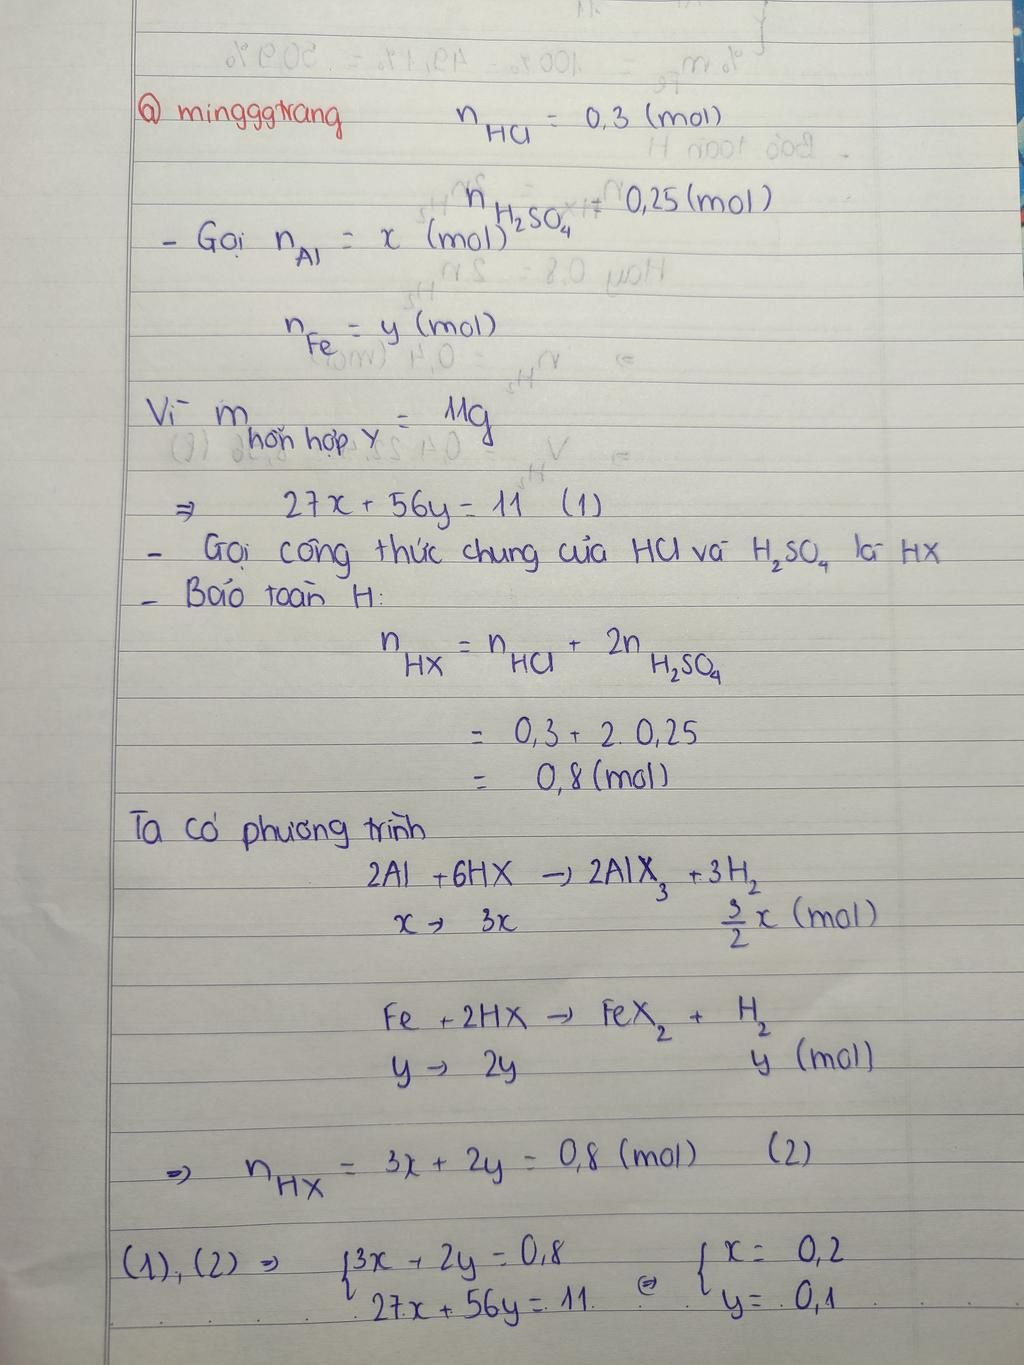 @ mingggtrang n HCl = 0,3 (mol)
n H₂SO₄ = 0,25 (mol)
- Gọi n Al = x (mol)
n Fe = y (mol)
Vì m hỗn hợp Y = 11g
⇒ 27x + 56y = 11 (1)
- Gọi công thức chung của HCl và H₂SO₄ là HX
- Bảo toàn H:
n HX = n HCl + 2n H₂SO₄
= 0,3 + 2. 0,25
= 0,8 (mol)
Ta có phương trình
2Al + 6HX → 2AlX₃ + 3H₂
x → 3x 3/2 x (mol)
Fe + 2HX → FeX₂ + H₂
y → 2y y (mol)
⇒ n HX = 3x + 2y = 0,8 (mol) (2)
(1), (2) ⇒ { 3x + 2y = 0,8 ⇔ { x = 0,2
27x + 56y = 11 y = 0,1